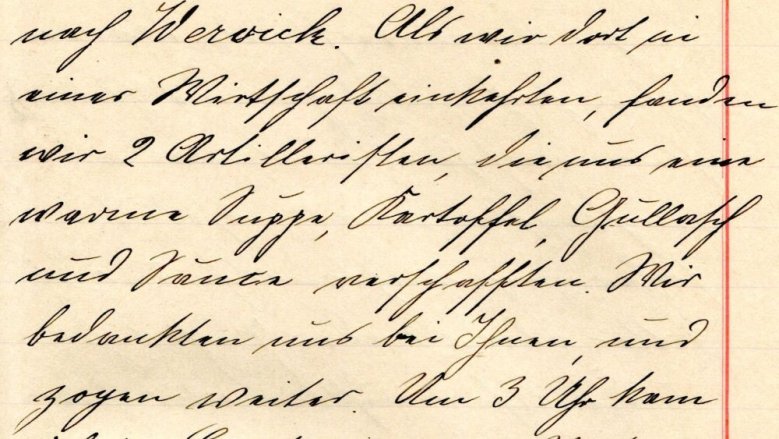 nach Werwick. Als wir dort in
einer Wirtschaft einkehrten, fanden
wir 2 Artilleristen, die uns eine
warme Suppe, Kartoffel, Gullasch
und Sauce verschafften. Wir
bedankten uns bei Ihnen und
zogen weiter. Um 3 Uhr kam